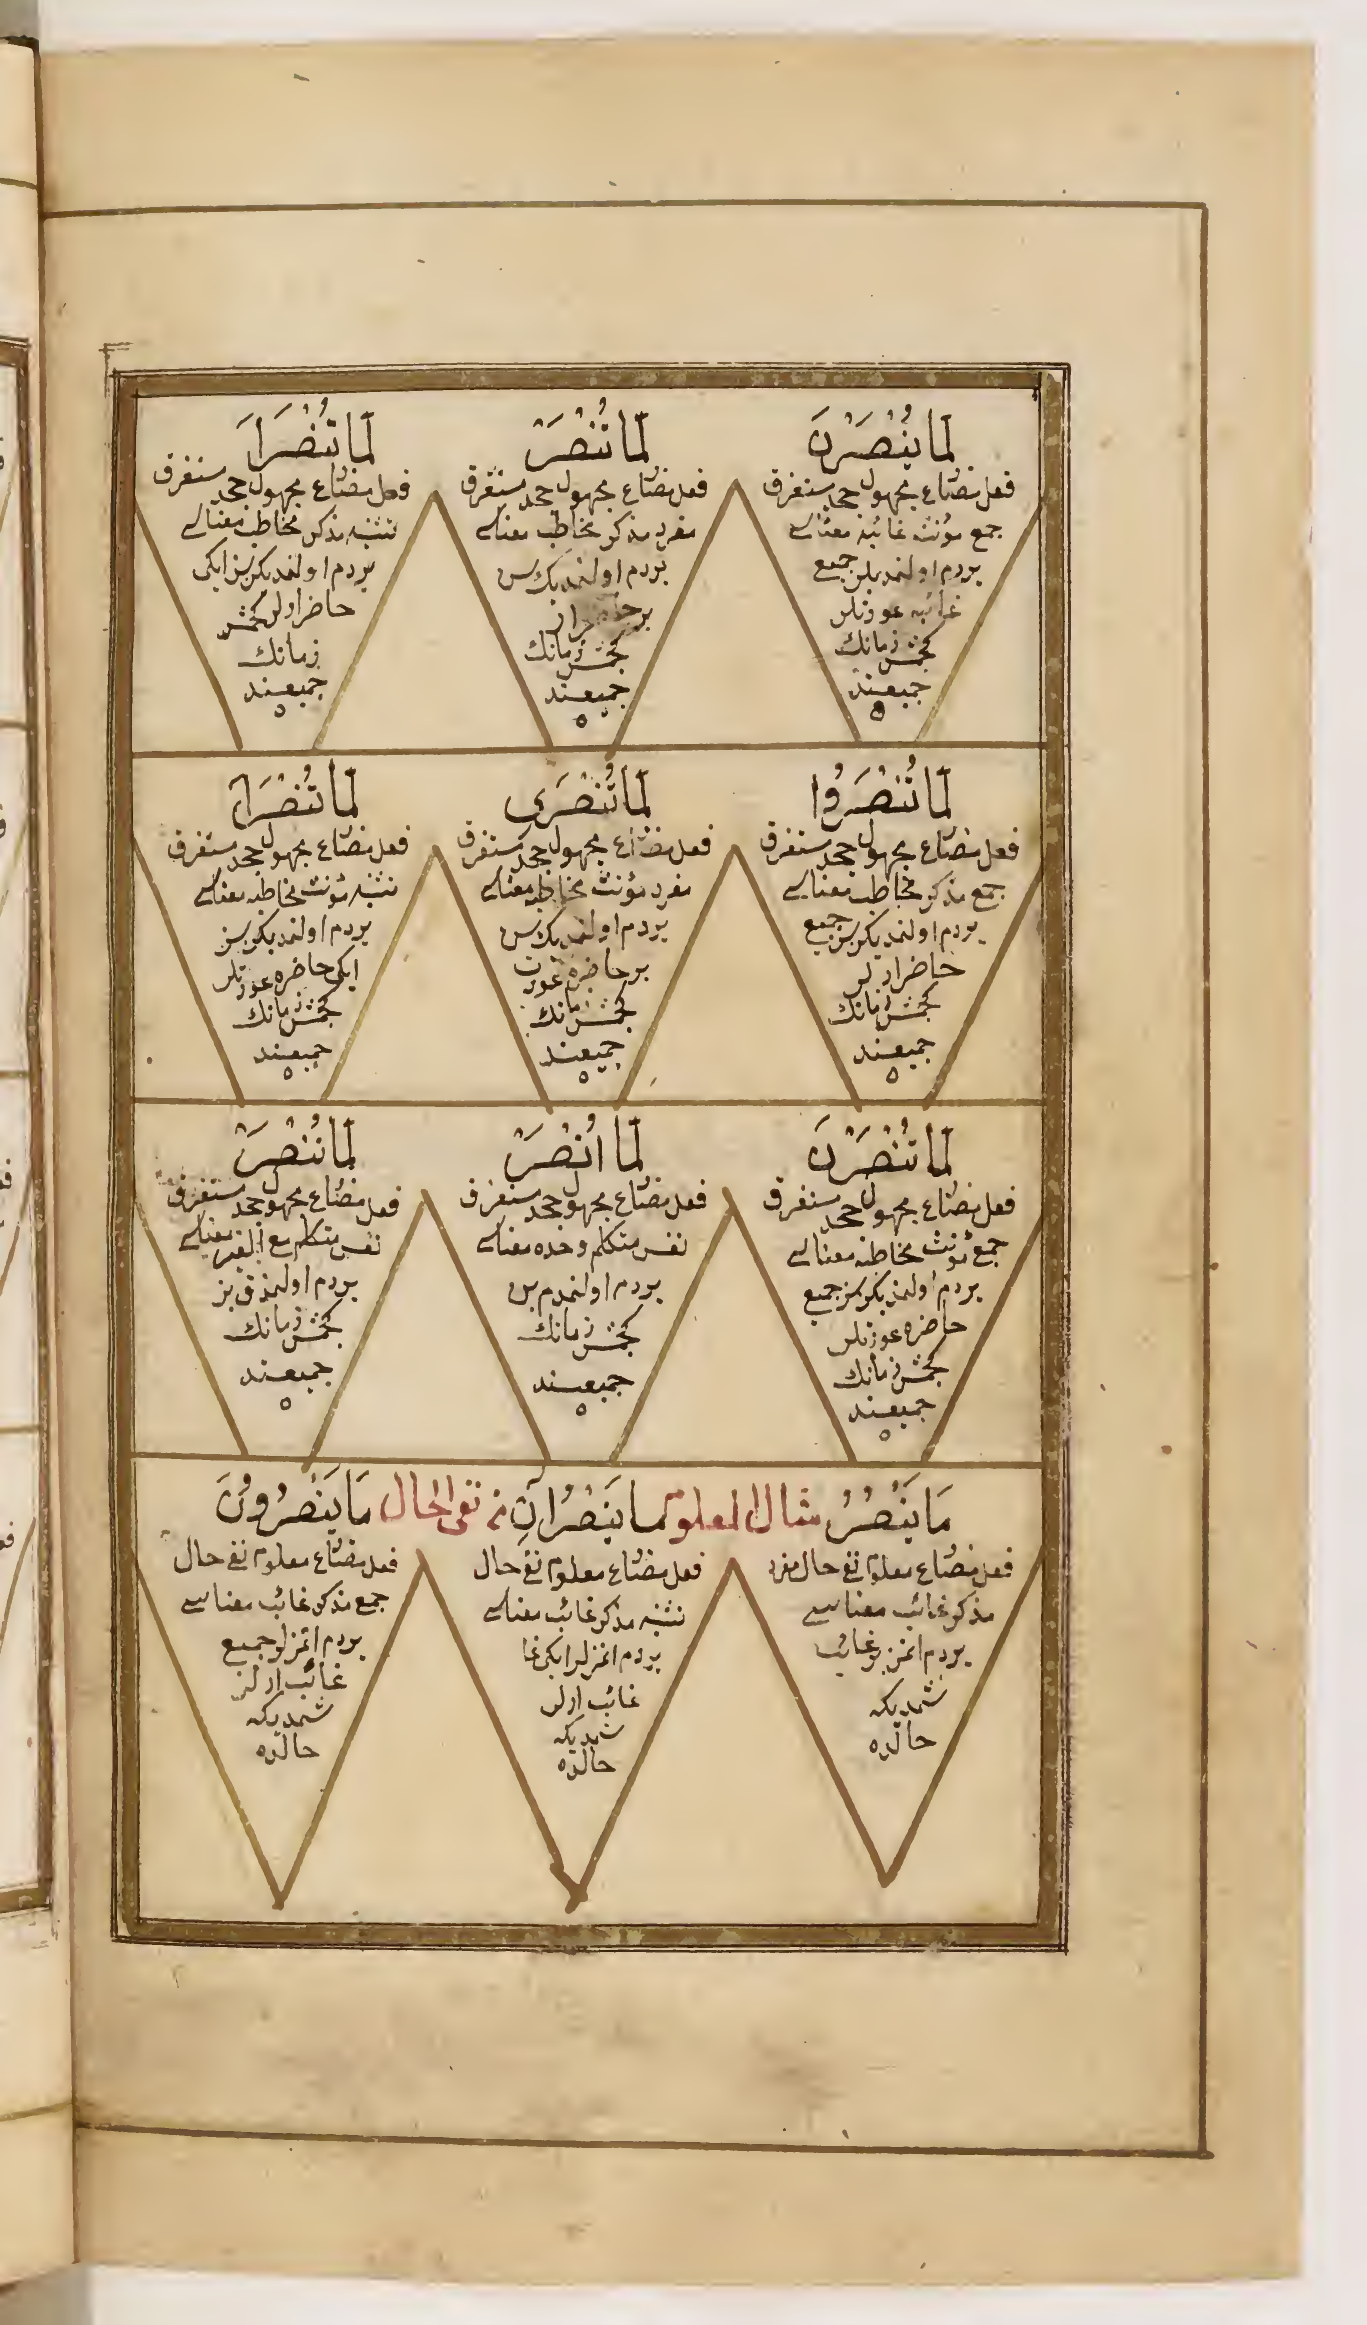 لَمَّا يُنْصَرْنَ
فعل مضارع مجهول جحد مستغرق
جمع مؤنث غائبه معناسى
يردم اولنمديلر جميع
غائبه عورتلر
كچمش زمانك
جميعنده
لَمَّا تُنْصَرْ
فعل مضارع مجهول جحد مستغرق
مفرد مذكر مخاطب معناسى
يردم اولنمدك سن
بر حاضر ار
كچمش زمانك
جميعنده
لَمَّا تُنْصَرَا
فعل مضارع مجهول جحد مستغرق
تثنيه مذكر مخاطب معناسى
يردم اولنمديكز سز ايكى
حاضر ارلر كچمش
زمانك
جميعنده
لَمَّا تُنْصَرُوا
فعل مضارع مجهول جحد مستغرق
جمع مذكر مخاطب معناسى
يردم اولنمديكز سز جميع
حاضر ارلر
كچمش زمانك
جميعنده
لَمَّا تُنْصَرِى
فعل مضارع مجهول جحد مستغرق
مفرد مؤنث مخاطبه معناسى
يردم اولنمدك سن
بر حاضره عورت
كچمش زمانك
جميعنده
لَمَّا تُنْصَرَا
فعل مضارع مجهول جحد مستغرق
تثنيه مؤنث مخاطبه معناسى
يردم اولنمديكز سز
ايكى حاضره عورتلر
كچمش زمانك
جميعنده
لَمَّا تُنْصَرْنَ
فعل مضارع مجهول جحد مستغرق
جمع مؤنث مخاطبه معناسى
يردم اولنمديكز سز جميع
حاضره عورتلر
كچمش زمانك
جميعنده
لَمَّا اُنْصَرْ
فعل مضارع مجهول جحد مستغرق
نفس متكلم وحده معناسى
يردم اولنمدم بن
كچمش زمانك
جميعنده
لَمَّا نُنْصَرْ
فعل مضارع مجهول جحد مستغرق
نفس متكلم مع الغير معناسى
يردم اولنمدق بز
كچمش زمانك
جميعنده
مَا يَنْصُرُ مثال المعلوم مَا يَنْصُرَانِ من نفى الحال مَا يَنْصُرُونَ
فعل مضارع معلوم نفى حال مفرد
مذكر غائب معناسى
يردم اتمز بر غائب
شمديكه
حالده
فعل مضارع معلوم نفى حال
تثنيه مذكر غائب معناسى
يردم اتمزلر ايكى غا
غائب ارلر
شمديكه
حالده
فعل مضارع معلوم نفى حال
جمع مذكر غائب معناسى
يردم اتمزلر جميع
غائب ارلر
شمديكه
حالده